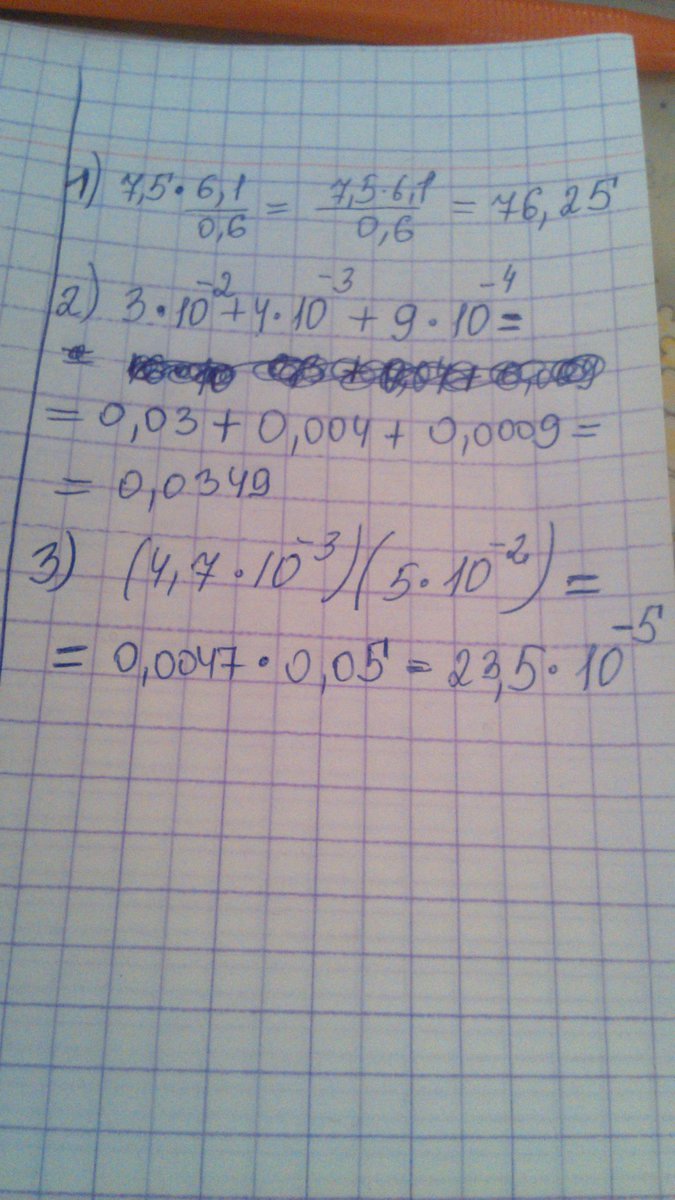 1) 7,5 · 6,1/0,6 = 7,5·6,1/0,6 = 76,25
2) 3·10⁻² + 4·10⁻³ + 9·10⁻⁴ =
=
= 0,03 + 0,004 + 0,0009 =
= 0,0349
3) (4,7·10⁻³)(5·10⁻²) =
= 0,0047 · 0,05 = 23,5·10⁻⁵